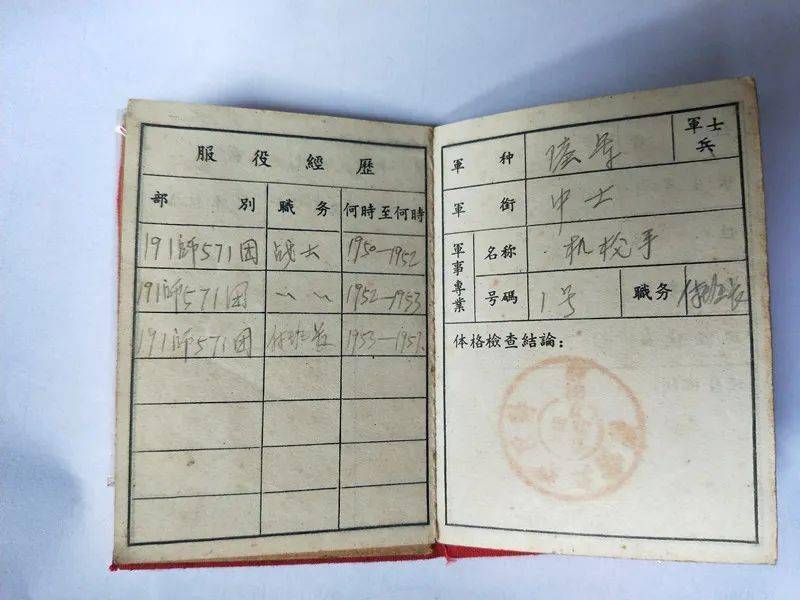 服役經歷
部別 職务 何時至何時
191師571团 战士 1950—1952
191師571团 〃 〃 1952—1953
191師571团 付班长 1953—1957.
軍种 陆军 軍士兵
軍銜 中士
軍事專業 名称 机枪手
号碼 1号 職务 付班长
体格檢查結論：